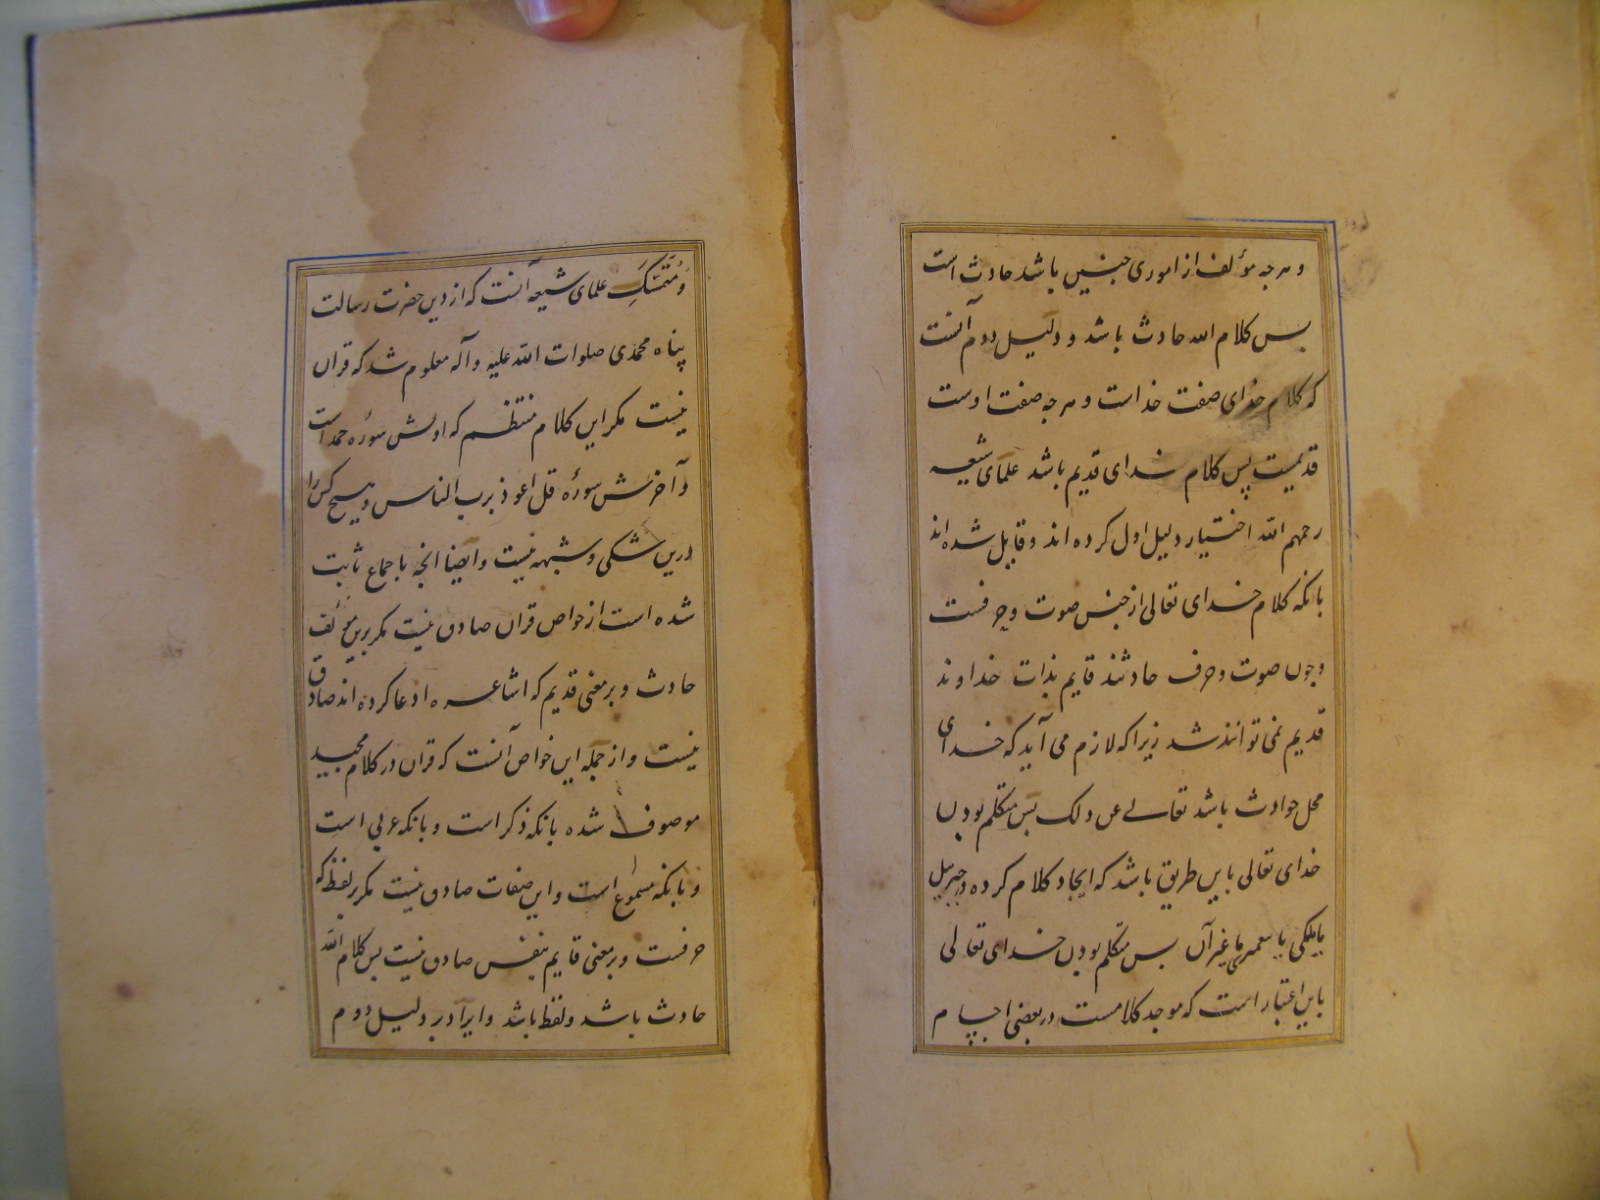 و هر جه مؤلف از اموری جنین باشد حادث است
بس کلام الله حادث باشد و دلیل دوم آنست
که کلام خدای صفت خداست و هر جه صفت اوست
قدیمست پس کلام خدای قدیم باشد علمای شیعه
رحمهم الله اختیار دلیل اول کرده اند و قایل شده اند
بانکه کلام خدای تعالی از جنس صوت و حرفست
و جون صوت و حرف حادثند قایم بذات خداوند
قدیم نمی توانند شد زیرا که لازم می آید که خدای
محل حوادث باشد تعالی عن ذلک بس متکلم بودن
خدای تعالی باین طریق باشد که ایجاد کلام کرده در جبرییل
یا ملکی یا پیغمبری یا غیر آن بس متکلم بودن خدای تعالی
باین اعتبار است که موجد کلامست در بعضی اجسام
و مُتَمَسَّکِ علمای شیعه آنست که از دین حضرت رسالت
پناه محمدی صلوات الله علیه و آله معلوم شد که قران
نیست مکر این کلام منتظم که اولش سورۀ حمد است
و آخرش سورۀ قل اعوذ برب الناس و هیچ کس را
درین شکی و شبهه نیست و ایضا انجه باجماع ثابت
شده است از خواص قران صادق نیست مکر برین مؤلف
حادث و بر معنی قدیم که اشاعره ادعا کرده اند صادق
نیست و از جمله این خواص آنست که قران در کلام مجید
موصوف شده بانکه ذکر است و بانکه عربی است
و بانکه مسموع است و این صفات صادق نیست مکر بر لفظ که
حرفست و بر معنی قایم بنفس صادق نیست بس کلام الله
حادث باشد و لفظ باشد و ایراد بر دلیل دوم